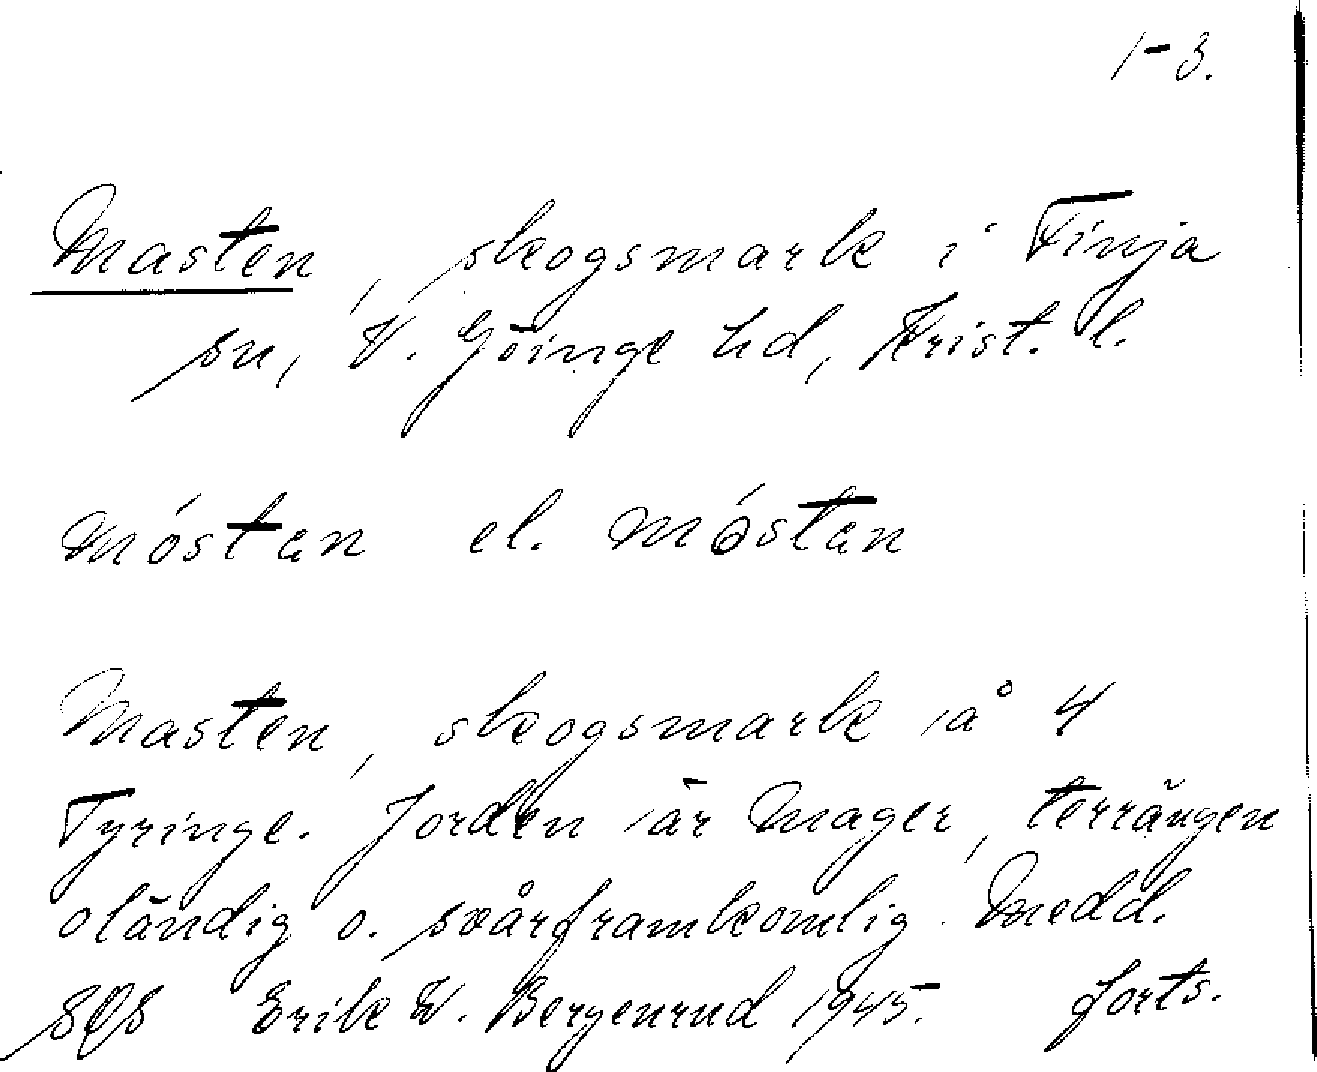 1-3.
Masten, skogsmark i Finja
sn, V. Göinge hd, Krist. l.
móstan el. móstan
Masten, skogsmark å 4
Tyringe. Jorden är mager, terrängen
oländig o. svårframkomlig. Medd.
Erik W. Bergenrud 1945. forts.